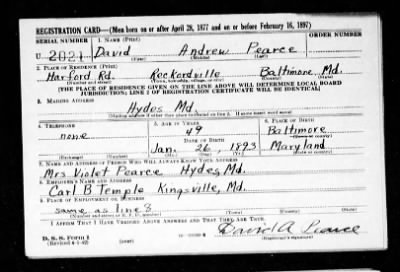 REGISTRATION CARD—(Men born on or after April 28, 1877 and on or before February 16, 1897)
SERIAL NUMBER 1. NAME (Print)
U 2021 David Andrew Pearce
(First) (Middle) (Last)
2. PLACE OF RESIDENCE (Print)
Harford Rd. Reckordville Baltimore Md.
(Number and street) (Town, township, village, or city) (County) (State)
[THE PLACE OF RESIDENCE GIVEN ON THE LINE ABOVE WILL DETERMINE LOCAL BOARD
JURISDICTION; LINE 2 OF REGISTRATION CERTIFICATE WILL BE IDENTICAL]
3. MAILING ADDRESS
Hydes Md.
[Mailing address if other than place indicated on line 2. If same insert word same]
4. TELEPHONE 5. AGE IN YEARS 6. PLACE OF BIRTH
none 49 Baltimore
DATE OF BIRTH (Town or county)
Jan. 26, 1893 Maryland
(Exchange) (Number) (Mo.) (Day) (Yr.) (State or country)
7. NAME AND ADDRESS OF PERSON WHO WILL ALWAYS KNOW YOUR ADDRESS
Mrs Violet Pearce Hydes, Md.
8. EMPLOYER'S NAME AND ADDRESS
Carl B Temple Kingsville, Md.
9. PLACE OF EMPLOYMENT OR BUSINESS
same as line 8
(Number and street or R. F. D. number) (Town) (County) (State)
I AFFIRM THAT I HAVE VERIFIED ABOVE ANSWERS AND THAT THEY ARE TRUE.
David A Pearce
D. S. S. Form 1
(Revised 4-1-42) (over) (Registrant's signature)